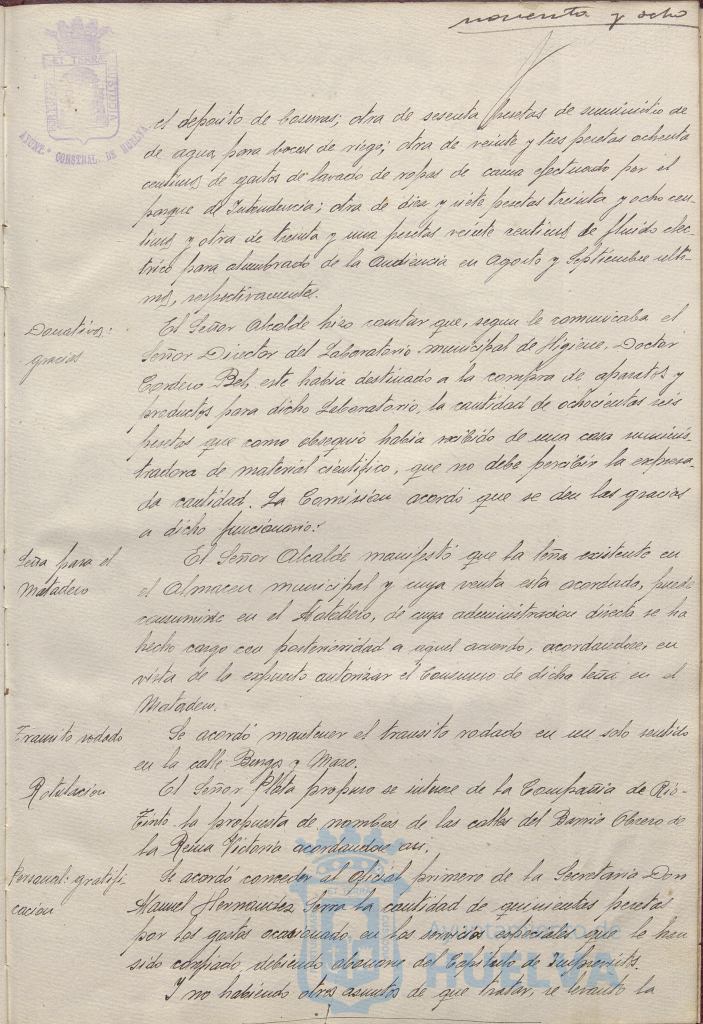 noventa y ocho
ET TERRA
AYUNT.º CONSTNAL. DE HUELVA
el deposito de bosuras; otra de sesenta pesetas de suministro de
de agua para bocas de riego; otra de veinte y tres pesetas ochenta
centims de gastos de lavado de ropas de cama efectuado por el
parque de Intendencia; otra de diez y siete pesetas treinta y ocho cen-
tims y otra de treinta y una pesetas veinte centims de fluido elec-
trico para alumbrado de la Audiencia en Agosto y Septiembre ulti-
mos, respectivamente.
Donativos:
gracias
El Señor Alcalde hizo constar que, segun le comunicaba el
Señor Director del Laboratorio municipal de Higiene, Doctor
Cordero Bel, este habia destinado a la compra de aparatos y
productos para dicho Laboratorio, la cantidad de ochocientas seis
pesetas que como obsequio habia recibido de una casa suminis-
tradora de material cientifico, que no debe percibir la expresa-
da cantidad. La Comisión acordó que se den las gracias
a dicho funcionario.
Leña para el
Matadero
El Señor Alcalde manifestó que la leña existente en
el Almacen municipal y cuya venta esta acordada, puede
consumirse en el Matadero, de cuya administracion directa se ha
hecho cargo con posterioridad a aquel acuerdo, acordandose, en
vista de lo expuesto autorizar el consumo de dicha leña en el
Matadero.
Transito rodado
Se acordó mantener el transito rodado en un solo sentido
en la calle Burgos y Mazo.
Rotulacion
El Señor Plata propuso se interese de la Compañia de Rio-
Tinto la propuesta de nombres de las calles del Barrio Obrero de
la Reina Victoria acordandose asi.
Personal: gratifi-
cacion
Se acordó conceder al Oficial primero de la Secretaria Don
Manuel Hernandez Serra la cantidad de quinientas pesetas
por los gastos ocasionado en los servicios especiales que le han
sido confiado, debiendo abonarse del Capitulo de Imprevistos.
Y no habiendo otros asuntos de que tratar, se levantó la
HUELVA